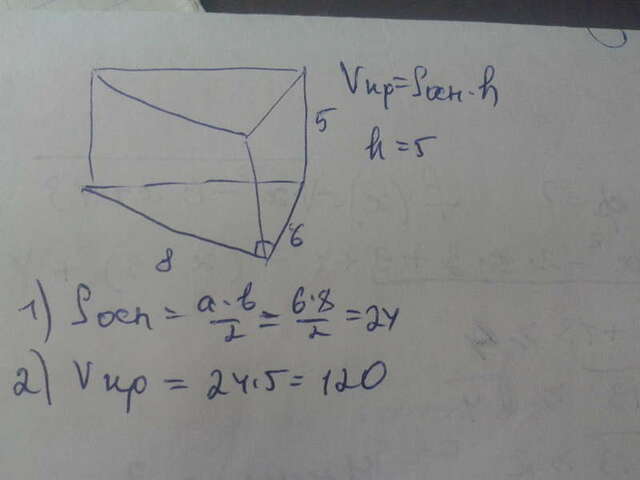 Vпр=Sосн·h
5
h=5
6
8
1) Sосн = a·b/2 = 6·8/2 = 24
2) Vпр = 24·5= 120